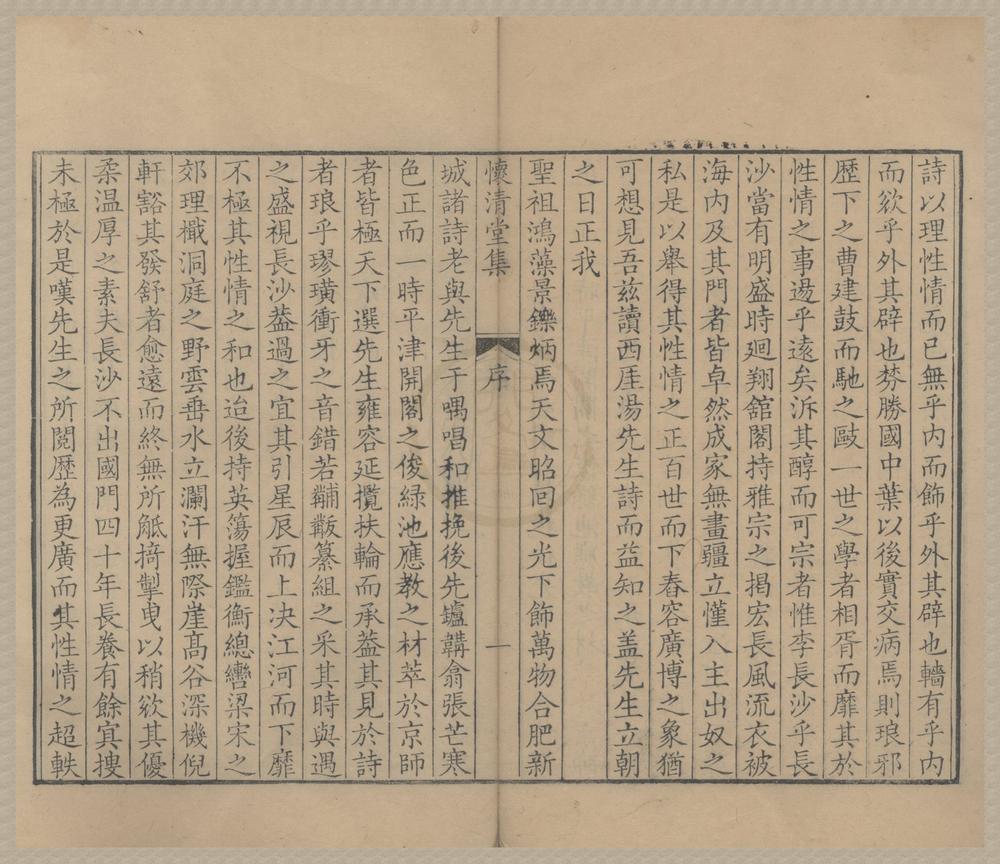 詩以理性情而已無乎内而飾乎外其辟也轖有乎内
而欲乎外其辟也棼勝國中葉以後實交病焉則琅邪
歷下之曹建鼓而馳之敺一世之學者相胥而靡其於
性情之事邊乎遠矣泝其醇而可宗者惟李長沙乎長
沙當有明盛時廻翔舘閣持雅宗之揭宏長風流衣被
海内及其門者皆卓然成家無畫疆立懂入主出奴之
私是以舉得其性情之正百世而下舂容廣博之象猶
可想見吾兹讀西厓湯先生詩而益知之盖先生立朝
之日正我
聖祖鴻藻景鑠炳焉天文昭回之光下飾萬物合肥新
懷清堂集 序 一
城諸詩老與先生于喁唱和推挽後先鑪鞲翕張芒寒
色正而一時平津開閣之俊緑池應教之材萃於京師
者皆極天下選先生雍容延攬扶輪而承葢其見於詩
者琅乎璆璜衝牙之音錯若黼黻纂組之采其時與遇
之盛視長沙葢過之宜其引星辰而上决江河而下靡
不極其性情之和也迨後持英簜握鑑衡總轡梁宋之
郊理檝洞庭之野雲垂水立瀾汗無際崖髙谷深機倪
軒豁其發舒者愈遠而終無所觝掎掣曳以稍欲其優
柔温厚之素夫長沙不出國門四十年長養有餘㝠搜
未極於是嘆先生之所閲歷為更廣而其性情之超軼